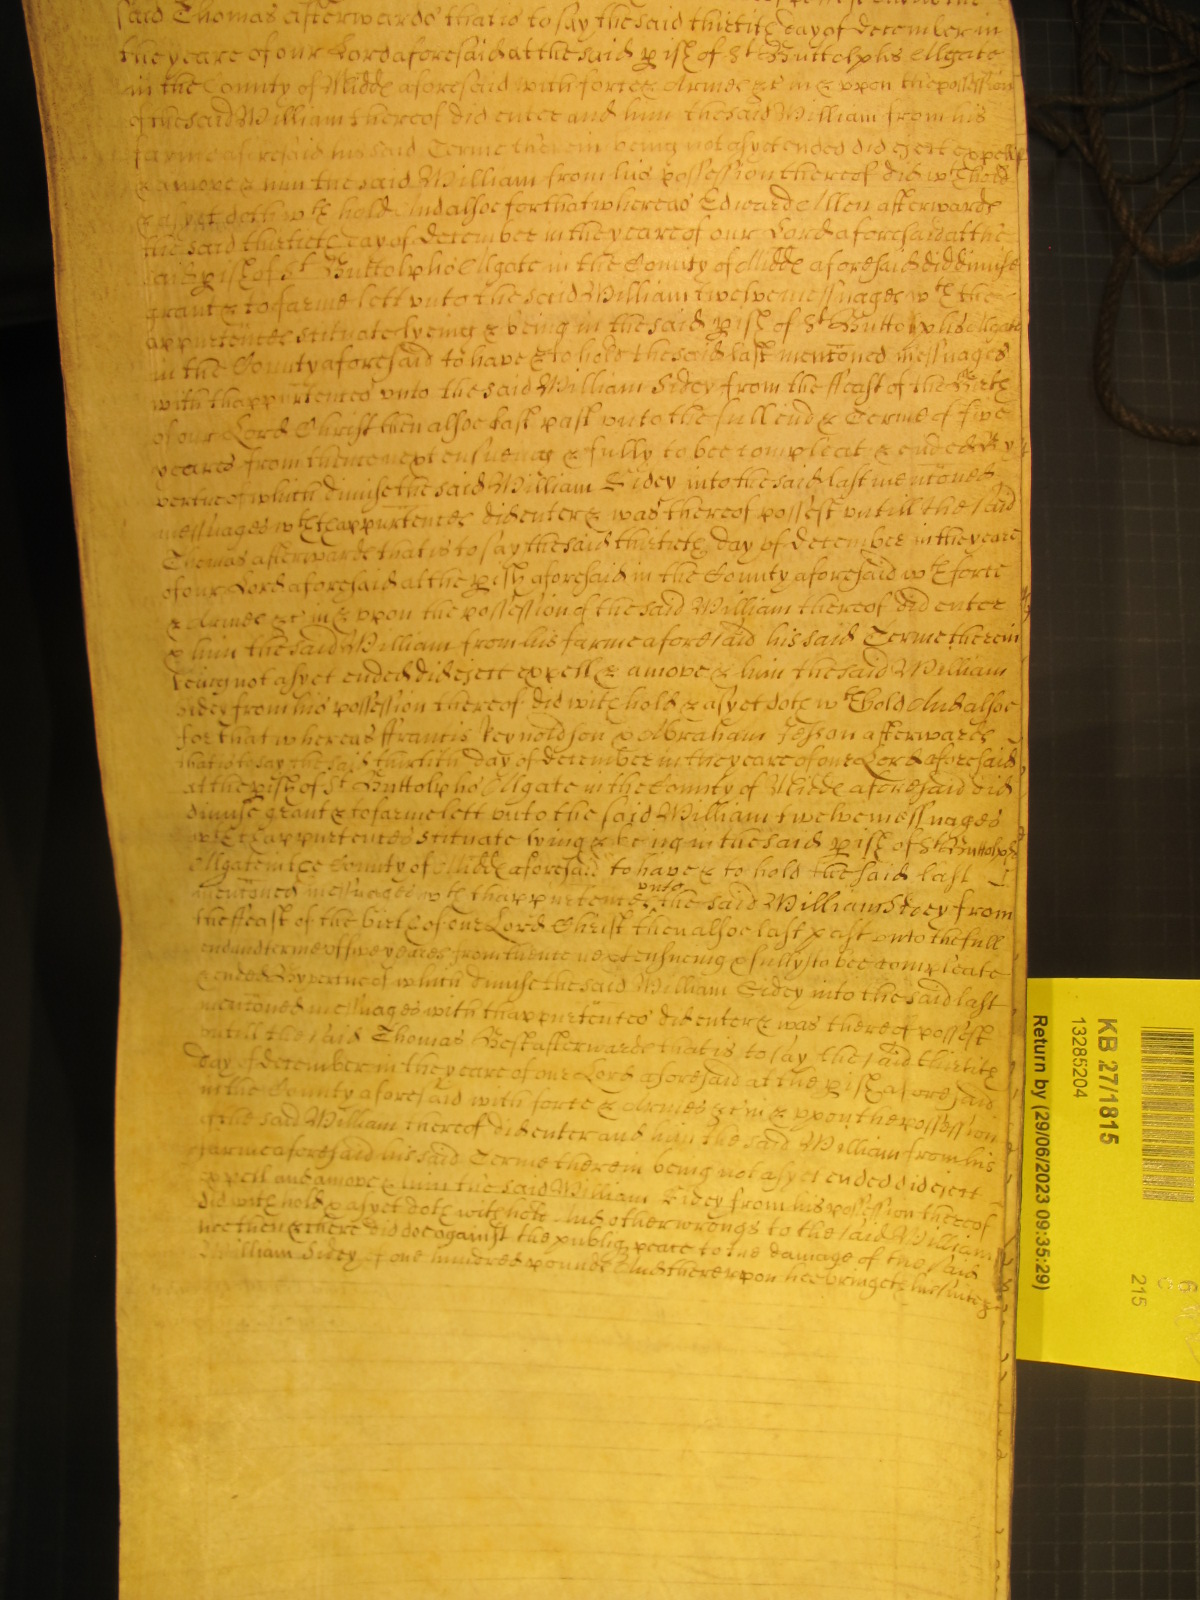 said Thomas afterwards that is to say the said thirtith day of december in
the yeare of our Lord aforesaid at the said pish of St Buttolphs Algate
in the County of Midd aforesaid with force & Armes &c in & vpon the possession
of the said William thereof did enter and him the said William from his
farme aforesaid his said Terme therein being not as yet ended did eject expell
& amove & him the said William from his possession thereof did wthhold
& as yet doth wth hold And alsoe for that whereas Edward Allen afterwards
the said thirtith day of december in the yeare of our Lord aforesaid at the
said pish of St Buttolphs Algate in the County of Midd aforesaid did dimise
grant & to farme lett vnto the said William twelve messuages wth the
appurtences scituate lyeing & being in the said pish of St Buttolphs Algate
in the County aforesaid to have & to hold the said last mentoned messuages
with thappurtences vnto the said William Sidey from the ffeast of the Birth
of our Lord Christ then alsoe last past vnto the full end & Terme of five
yeares from thence next ensueing & fully to bee compleat & ended By
vertue of which dimise the said William Sidey into the said last mentoned
messuages wth thappurtences did enter & was thereof possest vntill the said
Thomas afterwards that is to say the said thirtith day of december in the yeare
of our Lord aforesaid at the pish aforesaid in the County aforesaid wth force
& Armes &c in & vpon the possession of the said William thereof did enter
& him the said William from his farme aforesaid his said Terme therein
being not as yet ended did eject expell & amove & him the said William
Sidey from his possession thereof did with hold & as yet doth wthhold And alsoe
for that whereas ffrancis Reynoldson & Abraham Jesson afterwards
that is to say the said thirtith day of december in the yeare of our Lord aforesaid
at the pish of St Buttolphs Algate in the County of Midd aforesaid did
dimise grant & to farme lett vnto the said William twelve messuages
wth thappurtences scituate lying & being in the said pish of St Buttolphs
Algate in the County of Midd aforesaid to have & to hold the said last
mentoned messuages wth thappurtences vnto the said William Sidey from
the ffeast of the birth of our Lord Christ then alsoe last past vnto the full
end and terme of five yeares from thence next ensueing & fully to bee compleate
& ended By vertue of which dimise the said William Sidey into the said last
mentoned messuages with thappurtences did enter & was thereof possest
vntill the said Thomas Best afterwards that is to say the said thirtith
day of december in the yeare of our Lord aforesaid at the pish aforesaid
in the County aforesaid with force & Armes &c in & vpon the possession
of the said William thereof did enter and him the said William from his
farme aforesaid his said Terme therein being not as yet ended did eject
expell and amove & him the said William Sidey from his possession thereof
did with hold & as yet doth with hold And other wrongs to the said William
hee then & there did doe against the publiq peace to the damage of the said
William Sidey of one hundred pounds And therevpon hee bringeth his suite &c
KB 27/1815
13285204
Return by (29/06/2023 09:35:29)
215